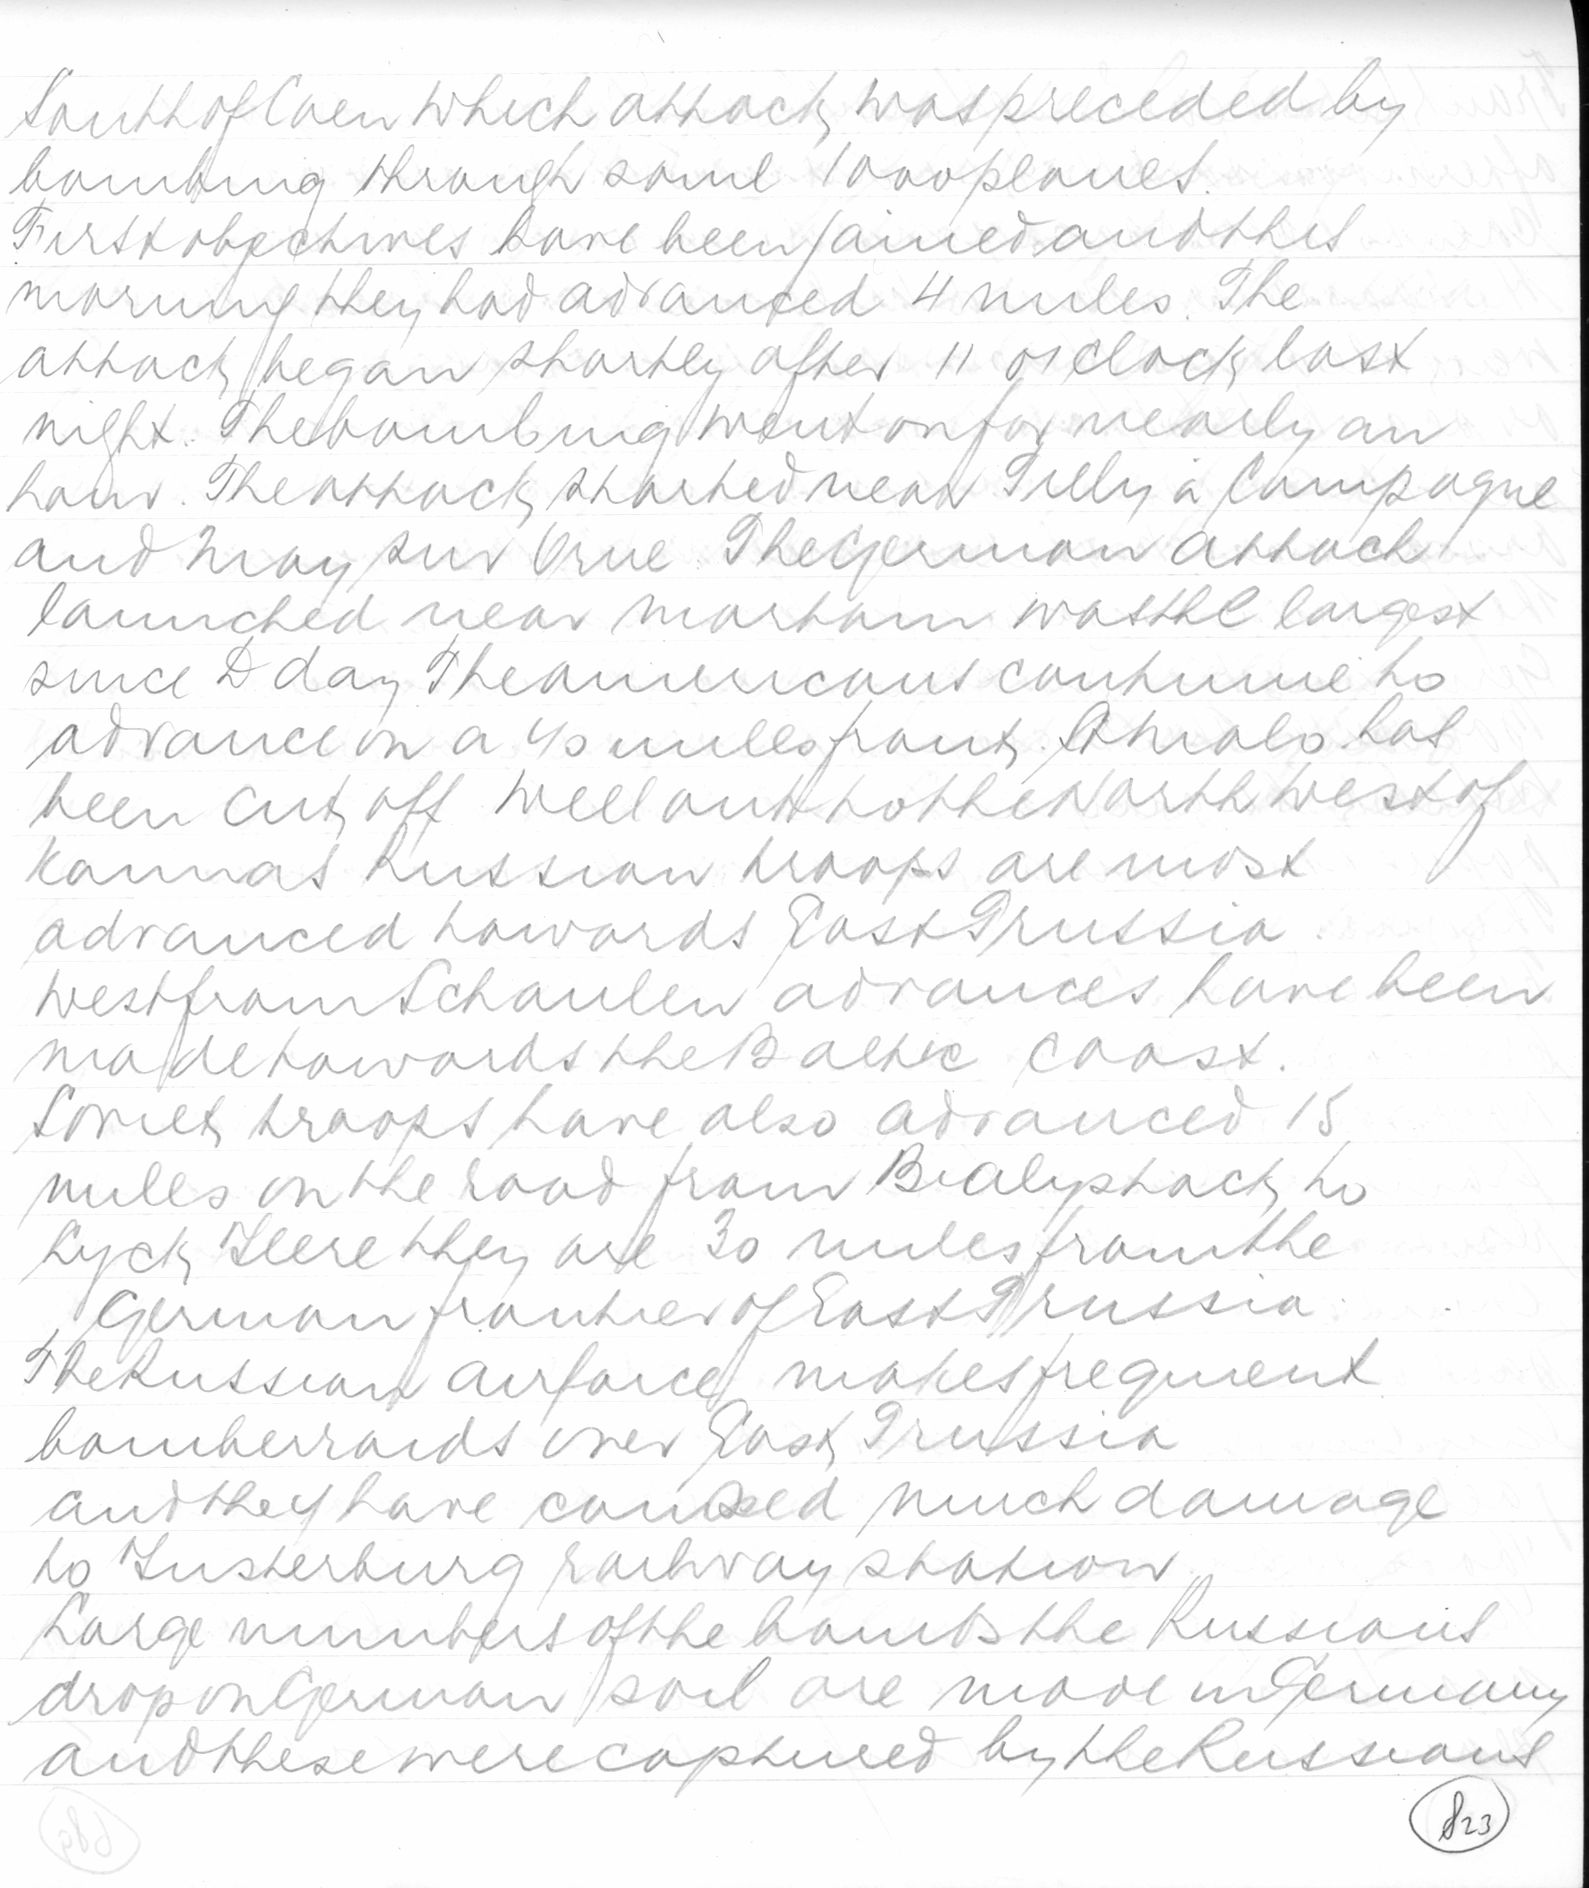 South of Caen which attack was preceded by
bombing through some 1000 planes.
First objectives have been gained and this
morning they had advanced 4 miles. The
attack began shortly after 11 o'clock last
night. The bombing went on for nearly an
hour. The attack started near Tilly a Campagne
and May sur Orne The German attack
launched near Mortain was the largest
since D day The americans continue to
advance on a 40 miles front. St Malo has
been cut off Well out to the North West of
Kaunas Russian troops are most
advanced towards East Prussia.
West from Schaulen advances have been
made towards the Baltic coast.
Soviet troops have also advanced 15
miles on the road from Bialystock to
Lyck Here they are 30 miles from the
German frontier of East Prussia.
The Russian airforce makes frequent
bomberraids over East Prussia
and they have caused much damage
to Insterburg railway station
Large numbers of the bombs the Russians
drop on German soil are made in Germany
and these were captured by the Russians
823